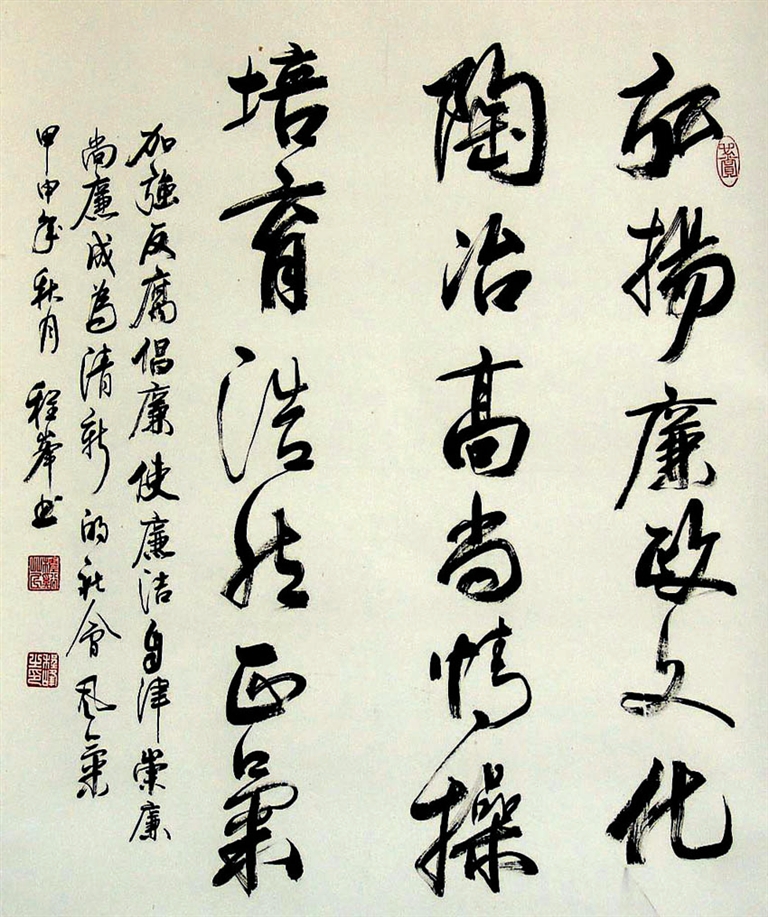 弘揚廉政文化
陶冶高尚情操
培育浩然正氣
加強反腐倡廉使廉潔自律崇廉
尚廉成為清新的社會風氣
甲申年秋月 程峯书